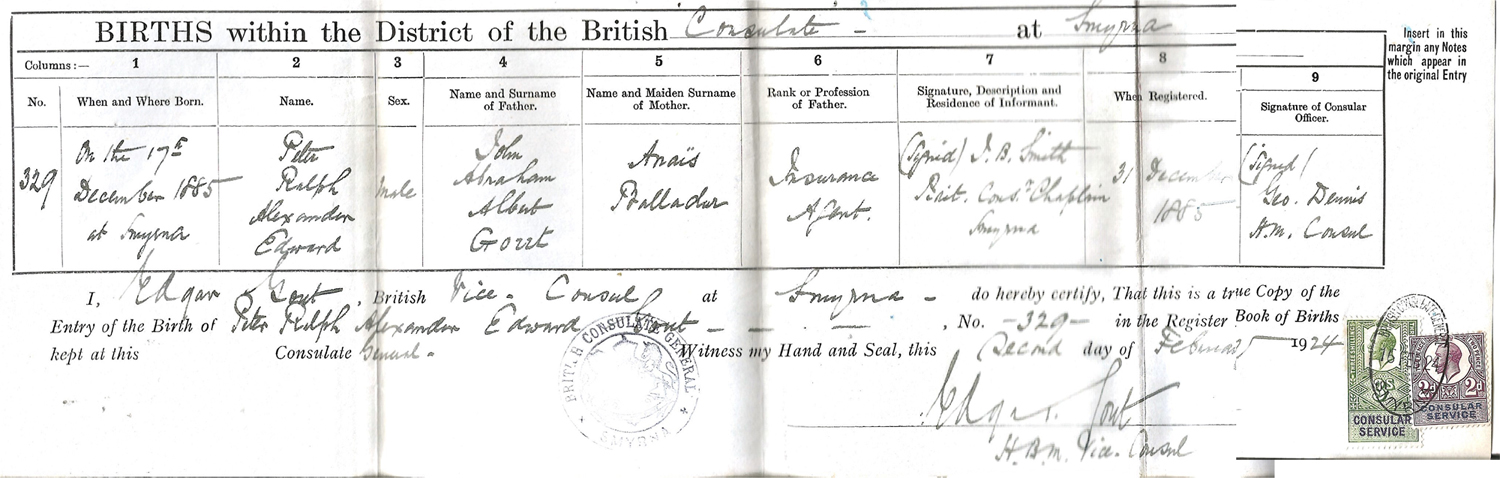 BIRTHS within the District of the British Consulate - at Smyrna
Insert in this
margin any Notes
which appear in
the original Entry
Columns :— 1 2 3 4 5 6 7 8 9
No.
When and Where Born.
Name.
Sex.
Name and Surname
of Father.
Name and Maiden Surname
of Mother.
Rank or Profession
of Father.
Signature, Description and
Residence of Informant.
When Registered.
Signature of Consular
Officer.
329
On the 17th
December 1885
at Smyrna
Peter
Ralph
Alexander
Edward
Male
John
Abraham
Albert
Gout
Anaïs
Balladur
Insurance
Agent.
(Signed) J. B. Smith
Brit. Cons. Chaplain
Smyrna
31 December
1885
(Signed)
Geo. Dennis
H.M. Consul
I, Edgar Gout, British Vice-Consul at Smyrna - do hereby certify, That this is a true Copy of the
Entry of the Birth of Peter Ralph Alexander Edward Gout - - - , No. -329- in the Register Book of Births
kept at this Consulate General - Witness my Hand and Seal, this Second day of February 1924
Edgar Gout
H.B.M. Vice-Consul
BRITISH CONSULATE GENERAL
SMYRNA
CONSULAR
SERVICE
2d 2d
CONSULAR
SERVICE